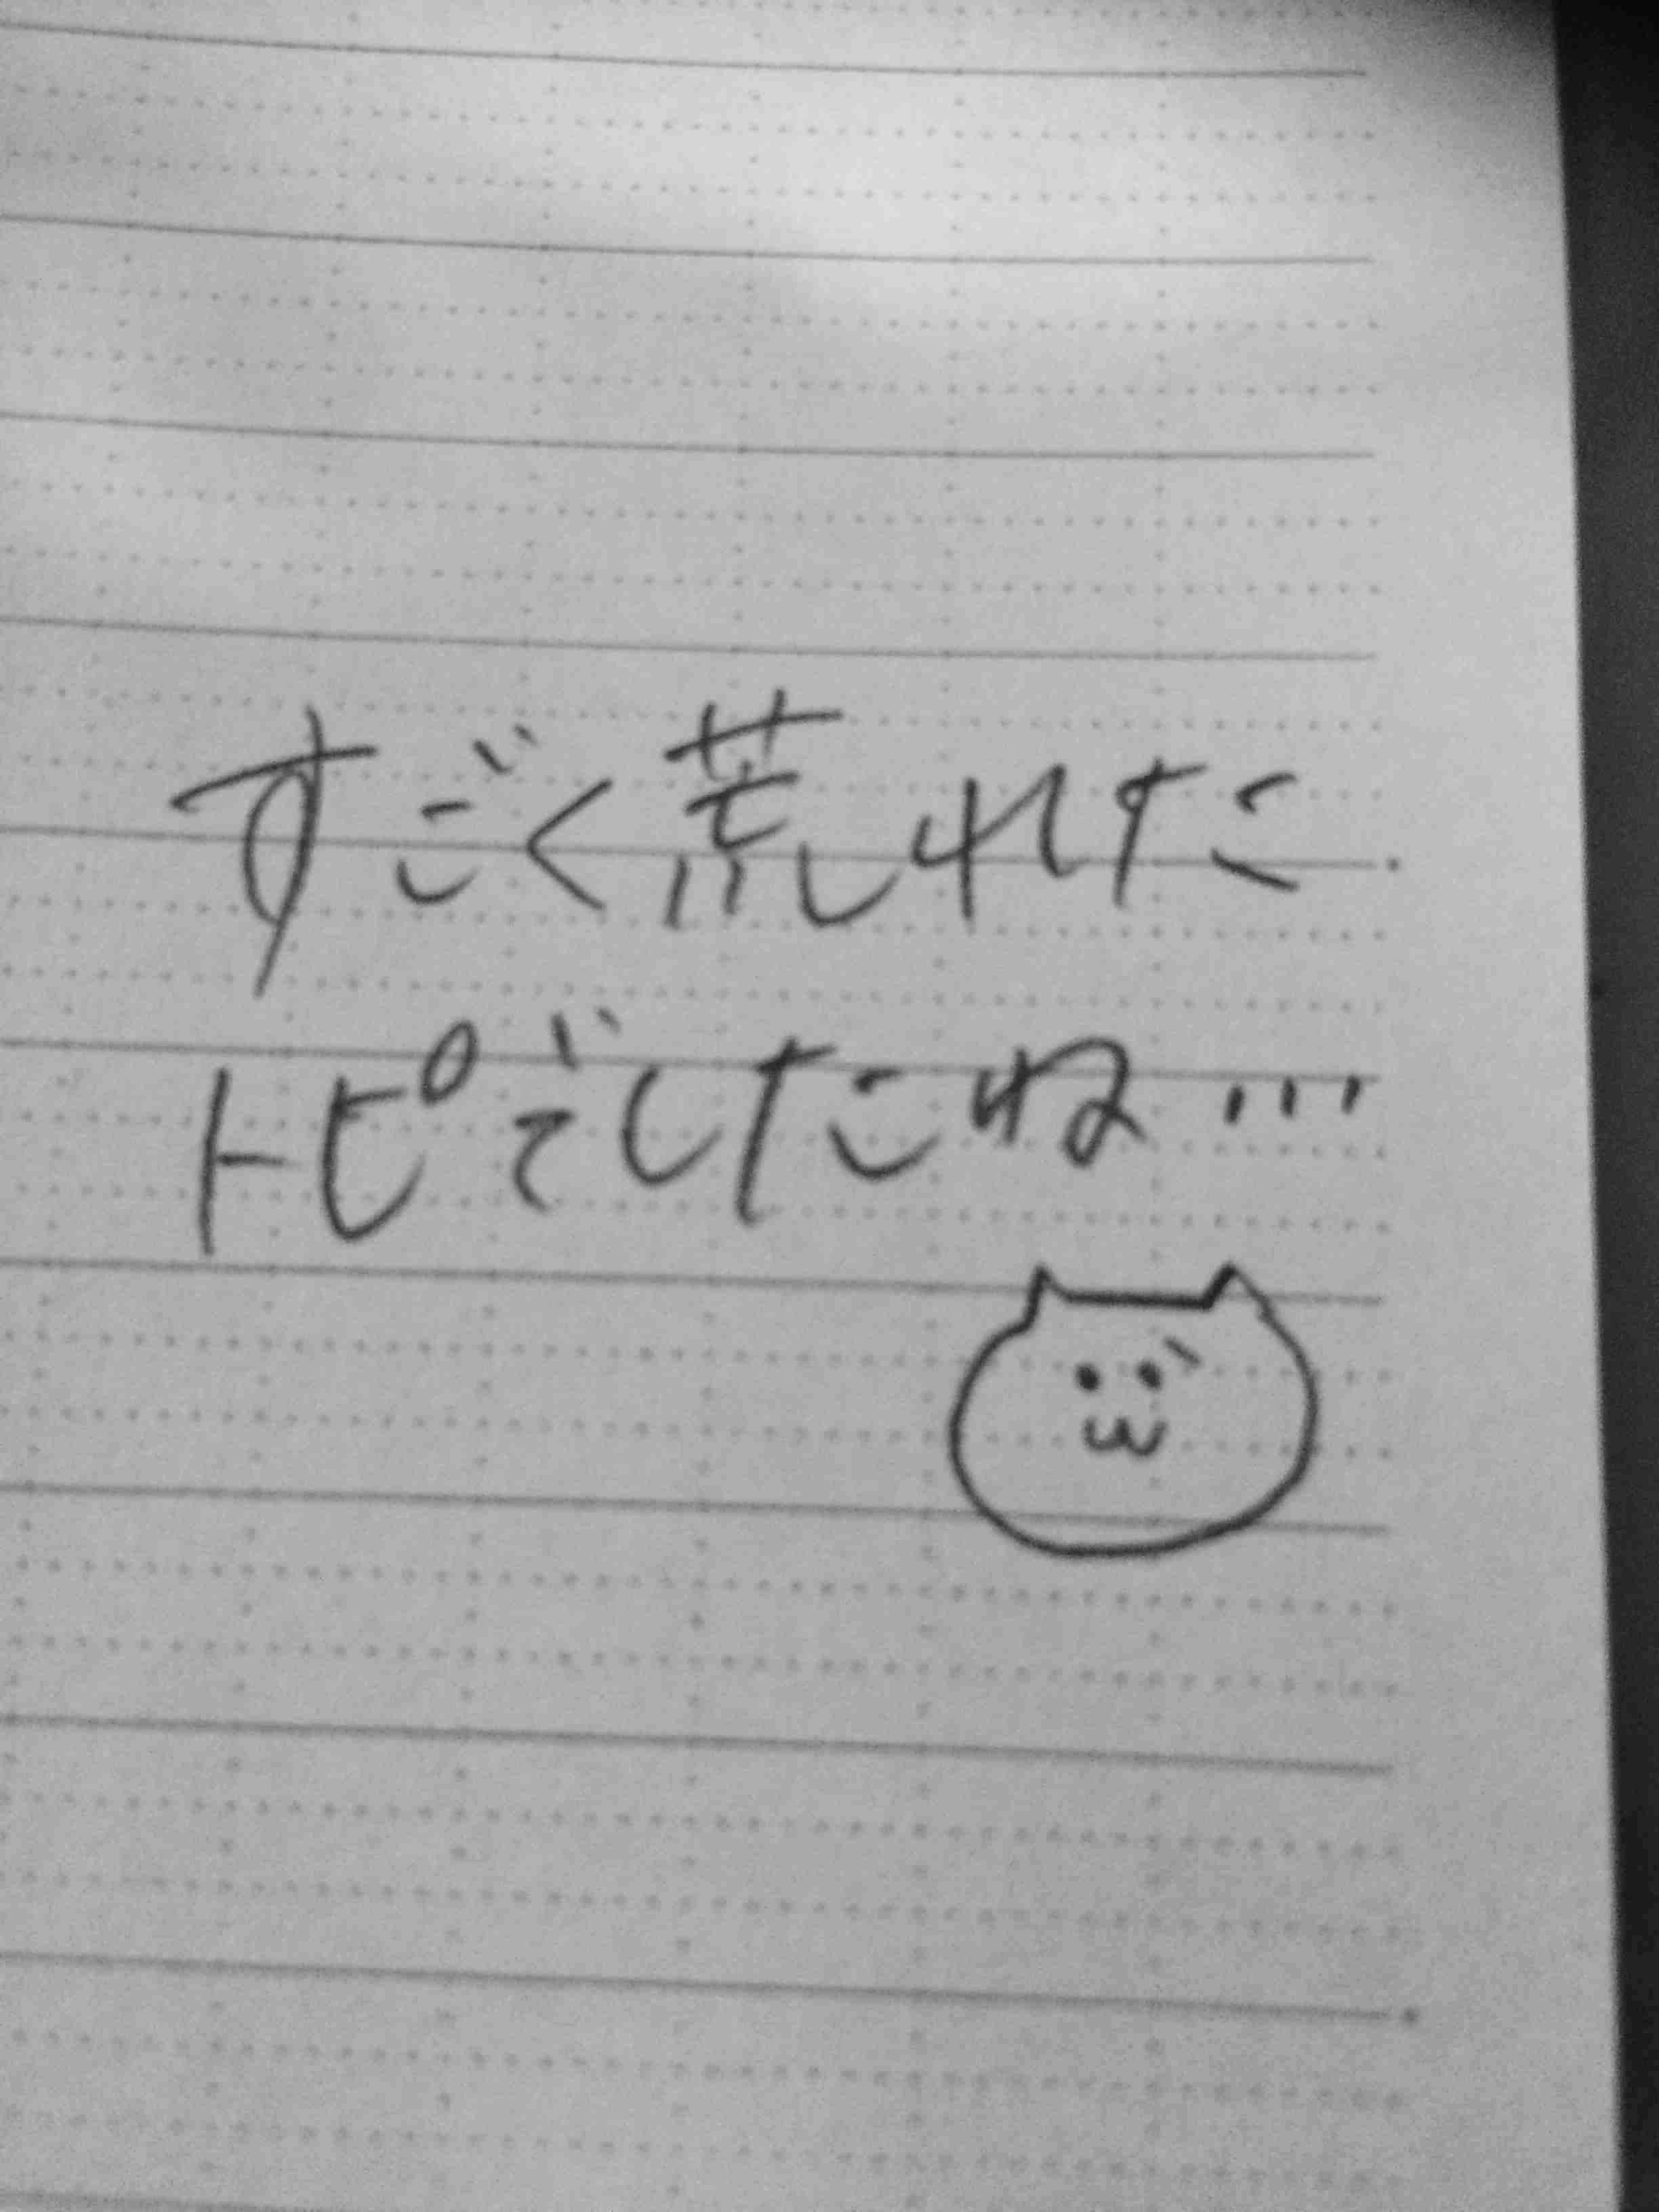 すごく荒れた
トピでしたね…